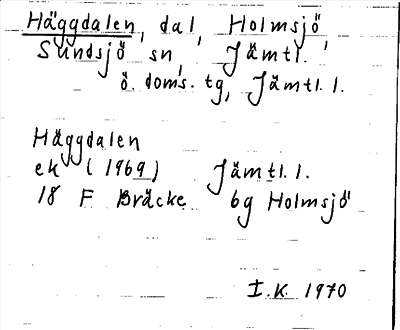 Häggdalen, dal, Holmsjö
Sundsjö sn, Jämtl.
ö. doms. tg, Jämtl. l.
Häggdalen
ek (1969) Jämtl. l.
18 F Bräcke bg Holmsjö
I.K. 1970